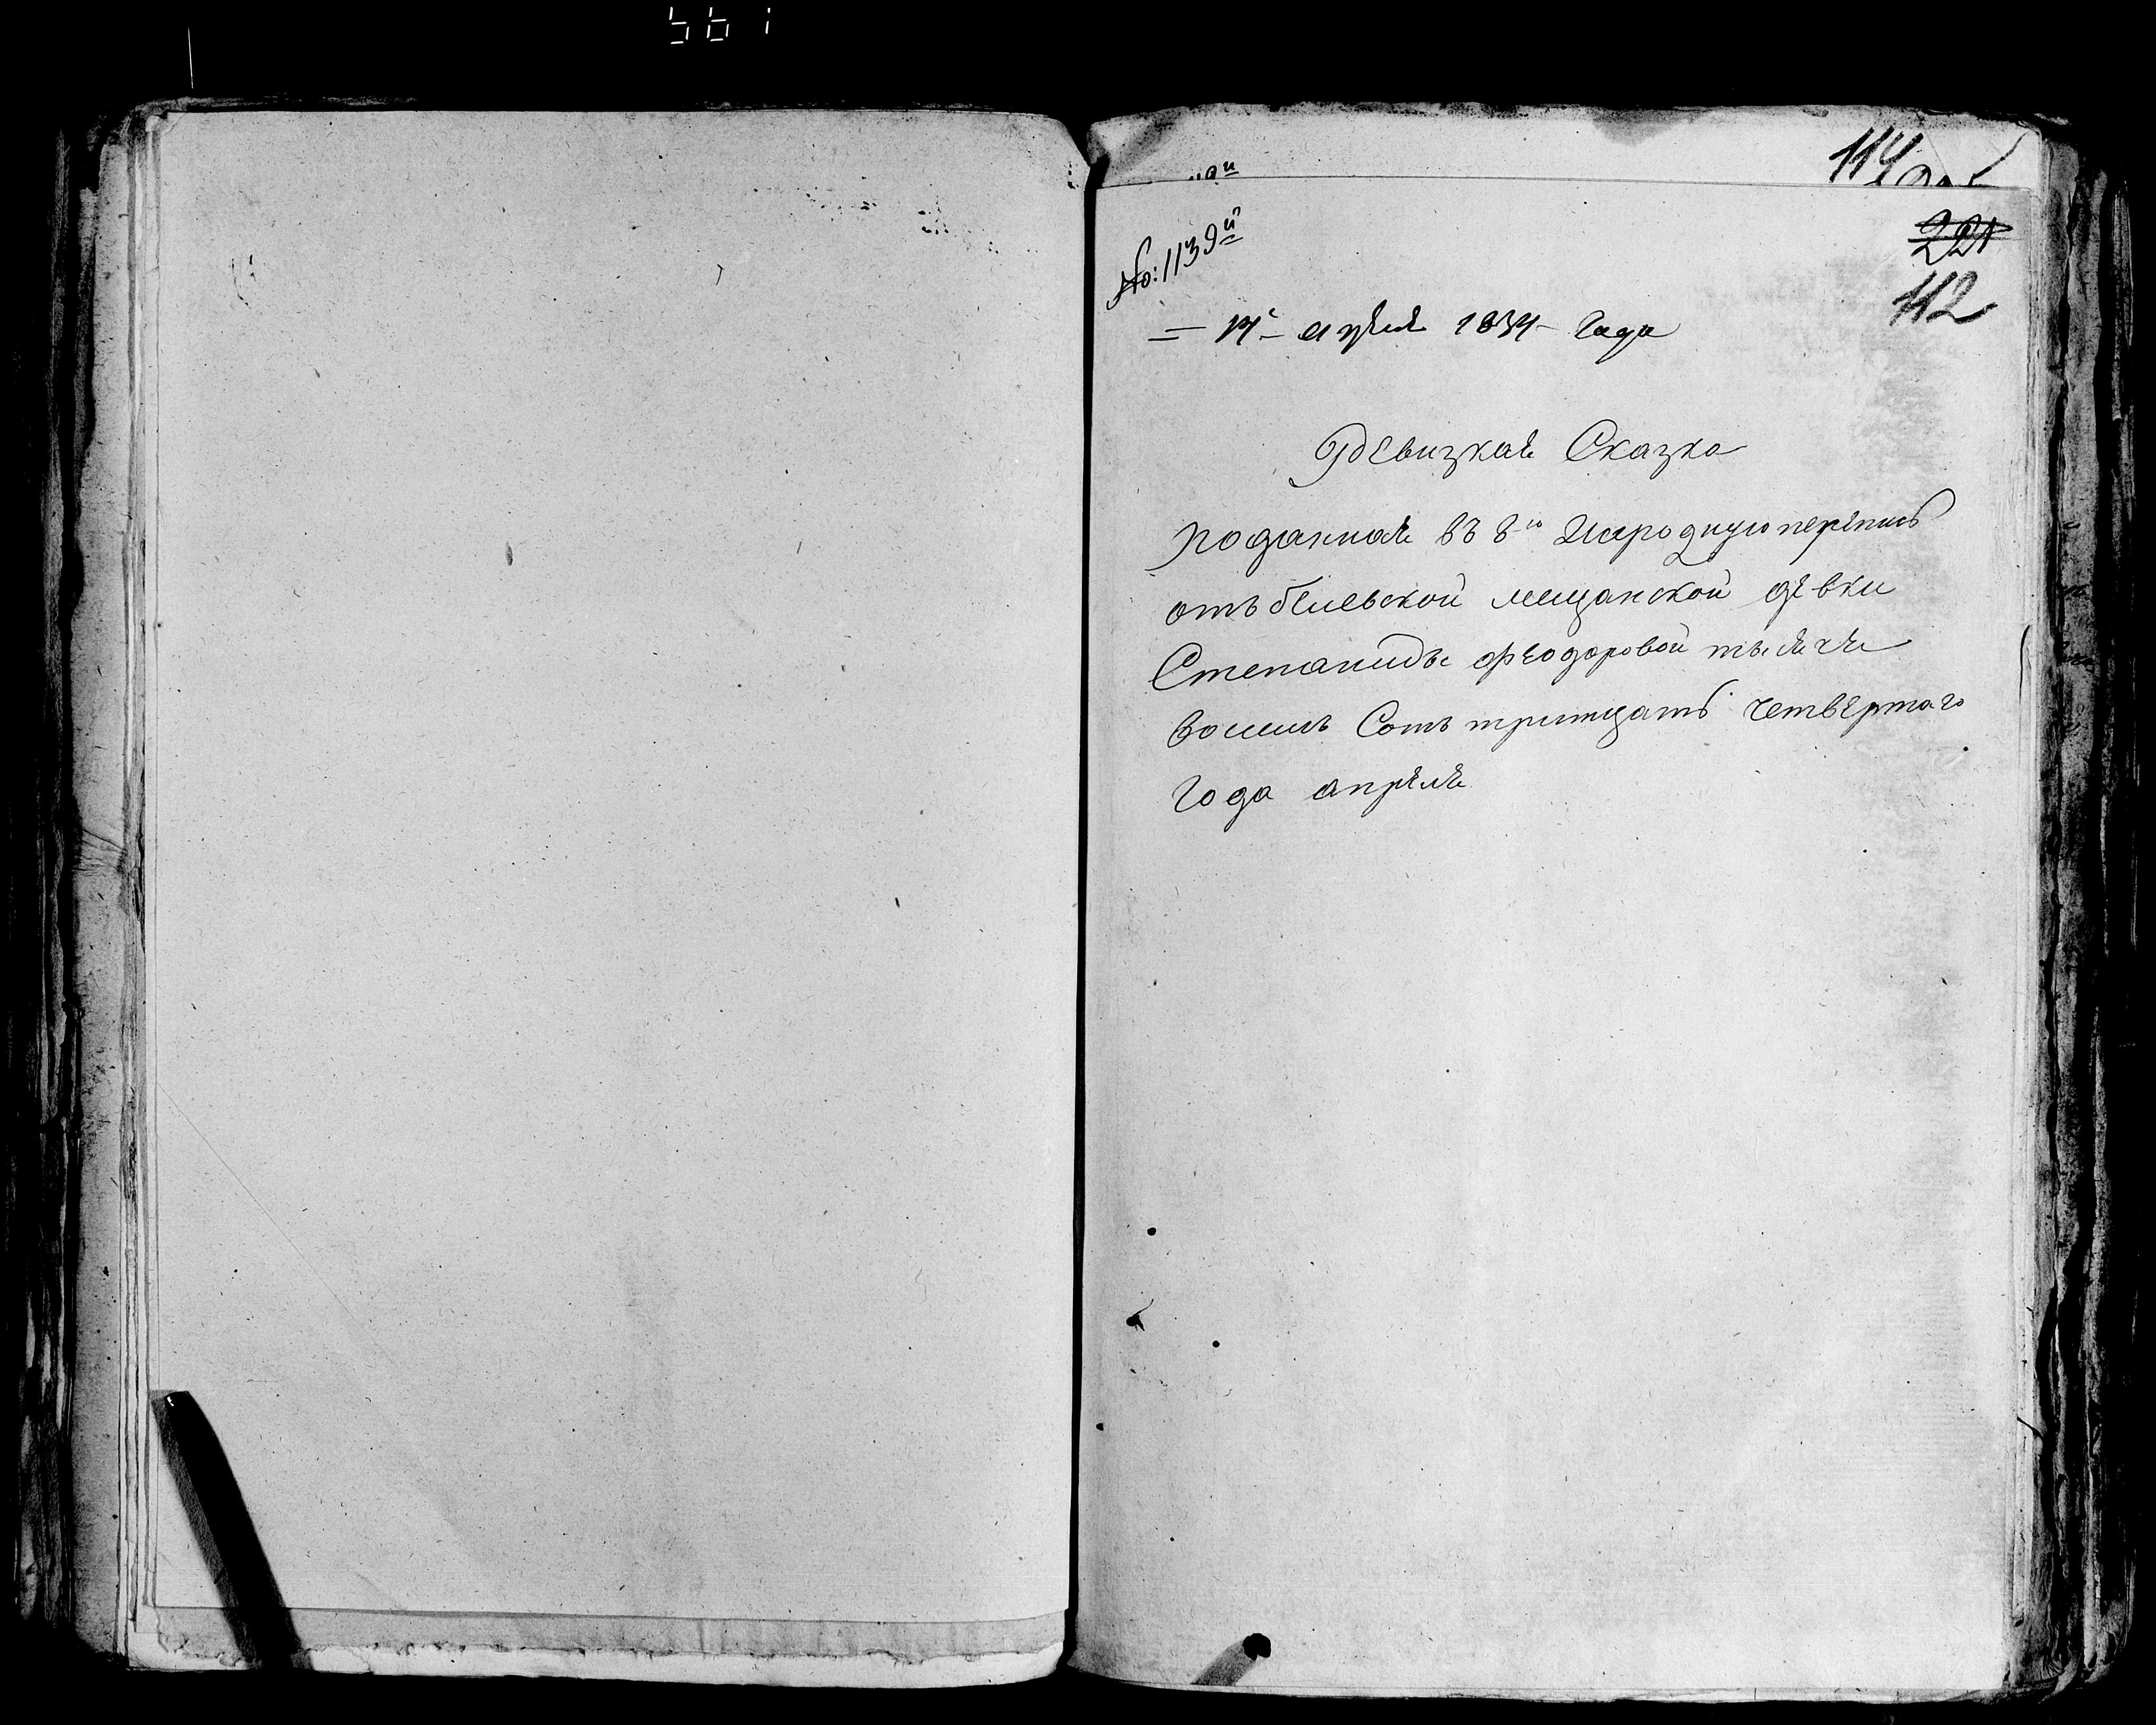 114
221
112
№: 1139й
14 апреля 1834 Года
Ревизкая Сказка
поданная въ 8ю Народную перепись
отъ белевской мещанской девки
Степаниды феодоровой тысяча
восемь Сотъ тритцать четвертаго
года апреля